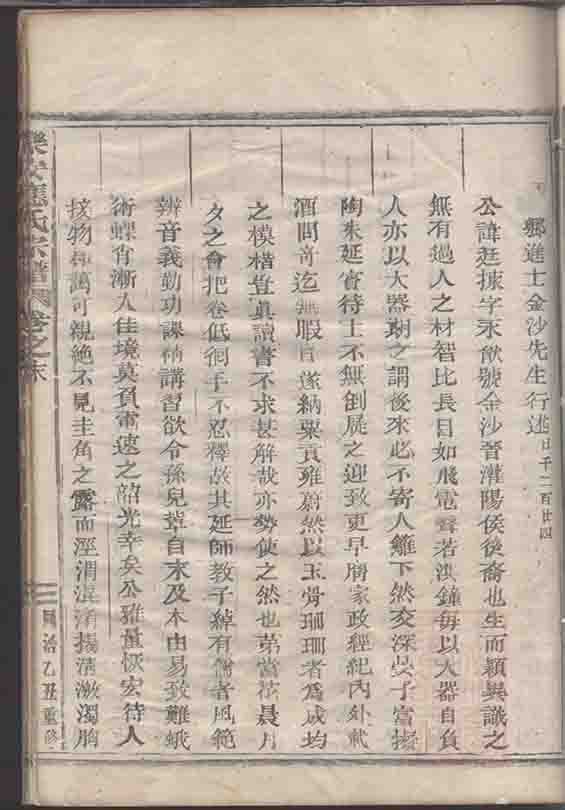 鄉進士金沙先生行述
公諱廷掄字永歆號金沙晉灌陽侯後裔也生而穎異識之
無有過人之材智比長目如飛電聲若洪鐘每以大器自負
人亦以大器期之謂後來必不寄人籬下然交深吳子富擬
陶朱延賓待士不無倒屣之迎致更早膺家政經紀內外載
酒問奇迄無暇日遂納粟貢雍蔚然以玉骨珊珊者為成均
之模楷豈真讀書不求甚解哉亦勢使之然也第當花晨月
夕之會把卷低徊手不忍釋故其延師教子綽有儒者風範
辨音義勤功課稱講習欲令孫兒輩自末及本由易致難蛾
術蝶宵漸入佳境莫負電速之韶光幸矣公雅量恢宏待人
接物和藹可親絕不見圭角之露而涇渭混淆揚清激濁胸
樂安應氏宗譜 卷之末
同治乙丑重修